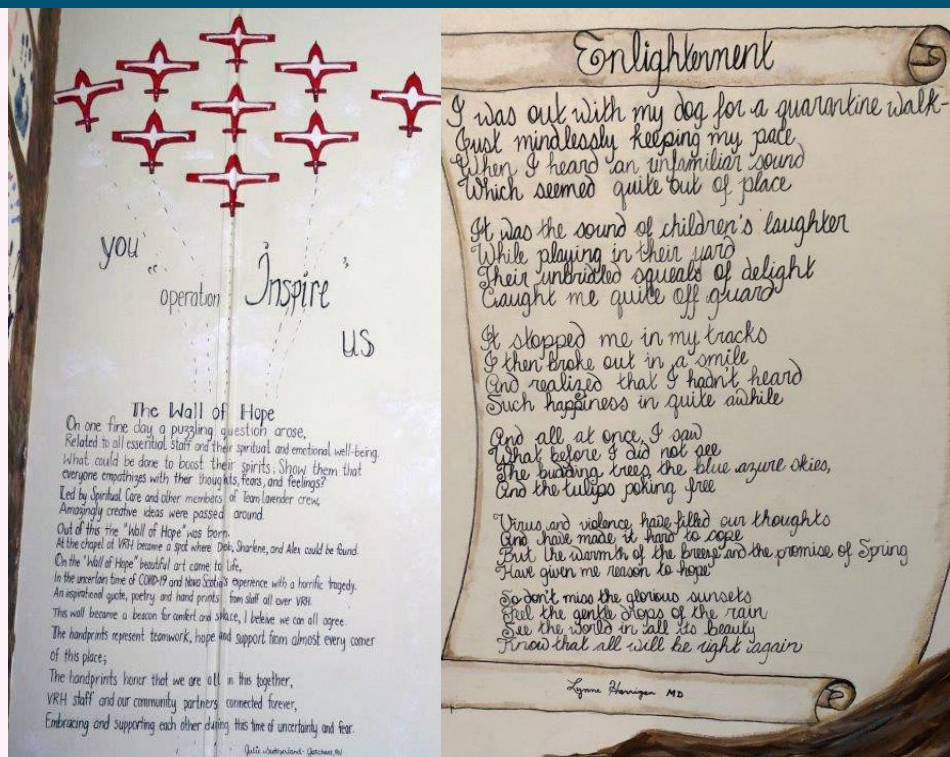 you
"operation Inspire"
us
The Wall of Hope
On one fine day a puzzling question arose,
Related to all essential staff and their spiritual and emotional well-being.
What could be done to boost their spirits; Show them that
everyone empathizes with their thoughts, fears, and feelings?
Led by Spiritual Care and other members of Team lavender crew,
Amazingly creative ideas were passed around.
Out of this the "Wall of Hope" was born.
At the chapel at VRH became a spot where Deb, Sharlene, and Alex could be found.
On the "Wall of Hope" beautiful art came to life,
In the uncertain time of COVID-19 and Nova Scotia's experience with a horrific tragedy.
An inspirational quote, poetry and hand prints from staff all over VRH.
This wall became a beacon for comfort and solace, I beleive we can all agree.
The handprints represent teamwork, hope and support from almost every corner
of this place;
The handprints honor that we are all in this together,
VRH staff and our community partners connected forever,
Embracing and supporting each other during this time of uncertainty and fear.
Enlightenment
I was out with my dog for a quarantine walk
Just mindlessly keeping my pace
When I heard an unfamiliar sound
Which seemed quite out of place
It was the sound of children's laughter
While playing in their yard
Their unbridled squeals of delight
Caught me quite off guard
It stopped me in my tracks
I then broke out in a smile
And realized that I hadn't heard
Such happiness in quite awhile
And all at once, I saw
What before I did not see
The budding trees, the blue azure skies,
And the tulips poking free
Virus and violence have filled our thoughts
And have made it hard to cope
But the warmth of the breeze and the promise of Spring
Have given me reason to hope
So don't miss the glorious sunsets
Feel the gentle drops of the rain
See the world in all its beauty
Know that all will be right again
Lynne Harrigan MD